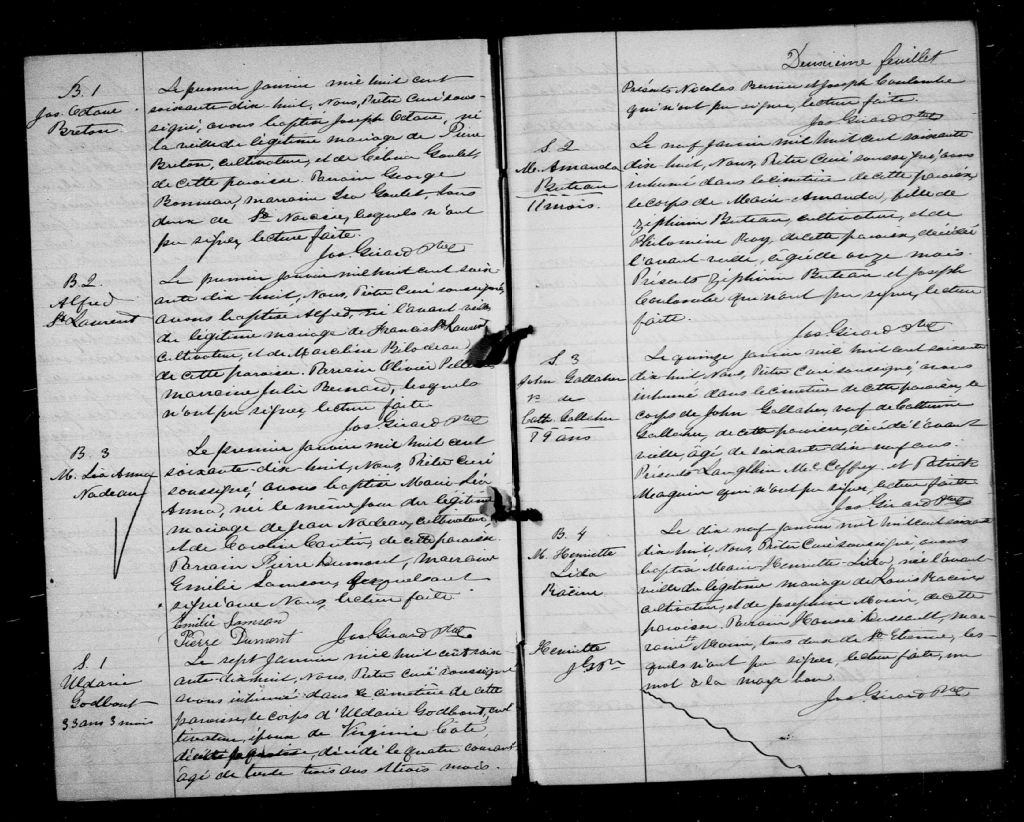 B. 1
Jos. Octave
Breton
Le premier Janvier mil huit cent
soixante dix huit, Nous, Prêtre Curé sous-
signé, avons baptisé Joseph Octave, né
la veille du légitime mariage de Pierre
Breton, cultivateur, et de Célina Goulet,
de cette paroisse. Parrain George
Bonneau, marraine Goulet, tous
deux de St lesquels n'ont
pu signer, lecture faite.
Jos. Girard Ptre
B. 2
Alfred
St Laurent
Le premier Janvier mil huit cent soix-
ante dix huit, Nous, Prêtre Curé soussigné,
avons baptisé Alfred, né l'avant veille
du légitime mariage de Francis St Laurent
cultivateur, et de Marceline Bilodeau,
de cette paroisse. Parrain Olivier
marraine Julie Bernard, lesquels
n'ont pu signer, lecture faite.
Jos. Girard Ptre
B. 3
M. Léa Anna
Nadeau
Le premier Janvier mil huit cent
soixante-dix-huit, Nous, Prêtre Curé
soussigné, avons baptisé Marie Léa
Anna, née le même jour du légitime
mariage de Jean Nadeau, cultivateur,
et de Caroline Cantin, de cette paroisse.
Parrain Pierre Dumont, marraine
Emilie Samson, lesquels ont
signé avec Nous, lecture faite.
Emilie Samson
Pierre Dumont
Jos. Girard Ptre
S. 1
Uldaric
Godbout
33 ans 3 mois
Le sept Janvier mil huit cent soix-
ante-dix huit, Nous, Prêtre Curé soussigné
avons inhumé dans le cimetière de cette
paroisse, le corps d'Uldaric Godbout, cul-
tivateur, époux de Virginie Côté,
décédé le quatre courant
âgé de trente trois ans et trois mois.
Deuxième feuillet
Présents Nicolas Bernier et Joseph Coulombe
qui n'ont pu signer, lecture faite.
Jos Girard Ptre
S. 2
M. Amanda
Buteau
11 mois.
Le neuf Janvier mil huit cent soixante
dix huit, Nous, Prêtre Curé soussigné, avons
inhumé dans le cimetière de cette paroisse,
le corps de Marie-Amanda, fille de
Ziphirin Buteau, cultivateur, et de
Philomène Roy, de cette paroisse, décédée
l'avant-veille, âgée de onze mois.
Présents Ziphirin Buteau et Joseph
Coulombe qui n'ont pu signer, lecture
faite.
Jos. Girard Ptre
S. 3
John Gallaher
vf de
Cath. Gallaher
79 ans
Le quinze Janvier mil huit cent soixante
dix huit, Nous, Prêtre Curé soussigné, avons
inhumé dans le cimetière de cette paroisse, le
corps de John Gallaher, veuf de Catherine
Gallaher, de cette paroisse, décédé l'avant
veille, âgé de soixante-dix neuf ans.
Présents Laughlin McCaffrey et Patrick
Maguire qui n'ont pu signer, lecture faite
Jos. Girard Ptre
B. 4
M. Henriette
Lida
Racine
Le dix neuf Janvier mil huit cent soixante
dix huit, Nous, Prêtre Curé soussigné avons
baptisé Marie Lida, née l'avant
veille du légitime mariage de Louis Racine
cultivateur, et de Josephine Morin, de cette
paroisse. Parrain Honoré Dussault, mar-
raine Morin, tous deux de St Etienne, les-
quels n'ont pu signer, lecture faite, un
mot à la marge bon.
Henriette
Jos. Girard Ptre